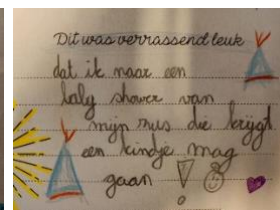 Dit was verrassend leuk
dat ik naar een
baby shower van
mijn zus die krijgt
een kindje mag
gaan !